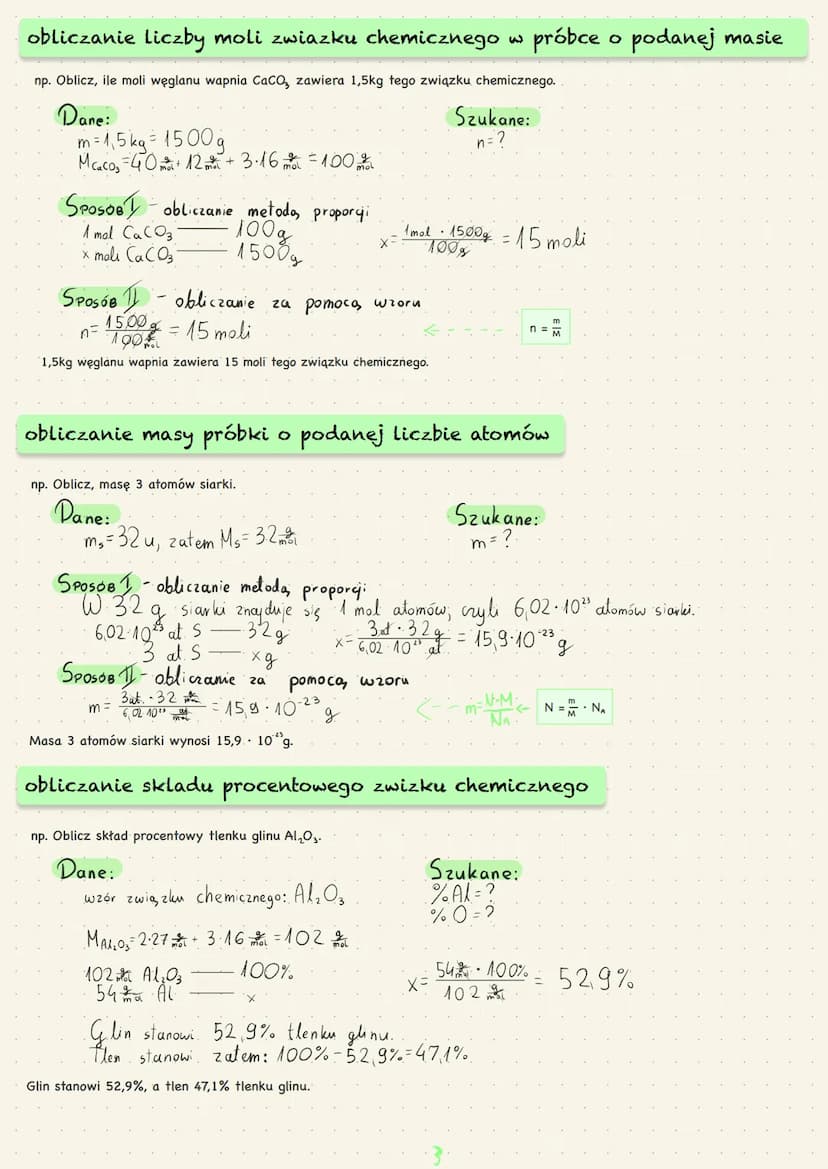 obliczanie liczby moli zwiazku chemicznego w próbce o podanej masie
np. Oblicz, ile moli węglanu wapnia CaCO₃ zawiera 1,5kg tego związku chemicznego.
Dane: Szukane:
m = 1,5 kg = 1500 g n = ?
M CaCO₃ = 40 g/mol + 12 g/mol + 3·16 g/mol = 100 g/mol
SPOSÓB I - obliczanie metodą proporcji
1 mol CaCO₃ — 100 g
x moli CaCO₃ — 1500 g x = 1mol · 1500g / 100g = 15 moli
SPOSÓB II - obliczanie za pomocą wzoru
n = 1500 g / 100 g/mol = 15 moli <- - - - - n = m/M
1,5kg węglanu wapnia zawiera 15 moli tego związku chemicznego.
obliczanie masy próbki o podanej liczbie atomów
np. Oblicz, masę 3 atomów siarki.
Dane: Szukane:
mₛ = 32 u, zatem Mₛ = 32 g/mol m = ?
SPOSÓB I - obliczanie metodą proporcji
W 32 g siarki znajduje się 1 mol atomów, czyli 6,02·10²³ atomów siarki.
6,02·10²³ at. S — 32 g
3 at. S — x g x = 3at · 32 g / 6,02·10²³ at = 15,9·10⁻²³ g
SPOSÓB II - obliczanie za pomocą wzoru
m = 3at. · 32 g/mol / 6,02·10²³ at/mol = 15,9·10⁻²³ g <- - m = N·M/Nₐ <- N = m/M · Nₐ
Masa 3 atomów siarki wynosi 15,9 · 10⁻²³g.
obliczanie skladu procentowego zwizku chemicznego
np. Oblicz skład procentowy tlenku glinu Al₂O₃.
Dane: Szukane:
wzór związku chemicznego: Al₂O₃ %Al = ?
%O = ?
M Al₂O₃ = 2·27 g/mol + 3·16 g/mol = 102 g/mol
102 g/mol Al₂O₃ — 100%
54 g/mol Al — x x = 54 g/mol · 100% / 102 g/mol = 52,9%
Glin stanowi 52,9% tlenku glinu.
Tlen stanowi zatem: 100% - 52,9% = 47,1%.
Glin stanowi 52,9%, a tlen 47,1% tlenku glinu.
3